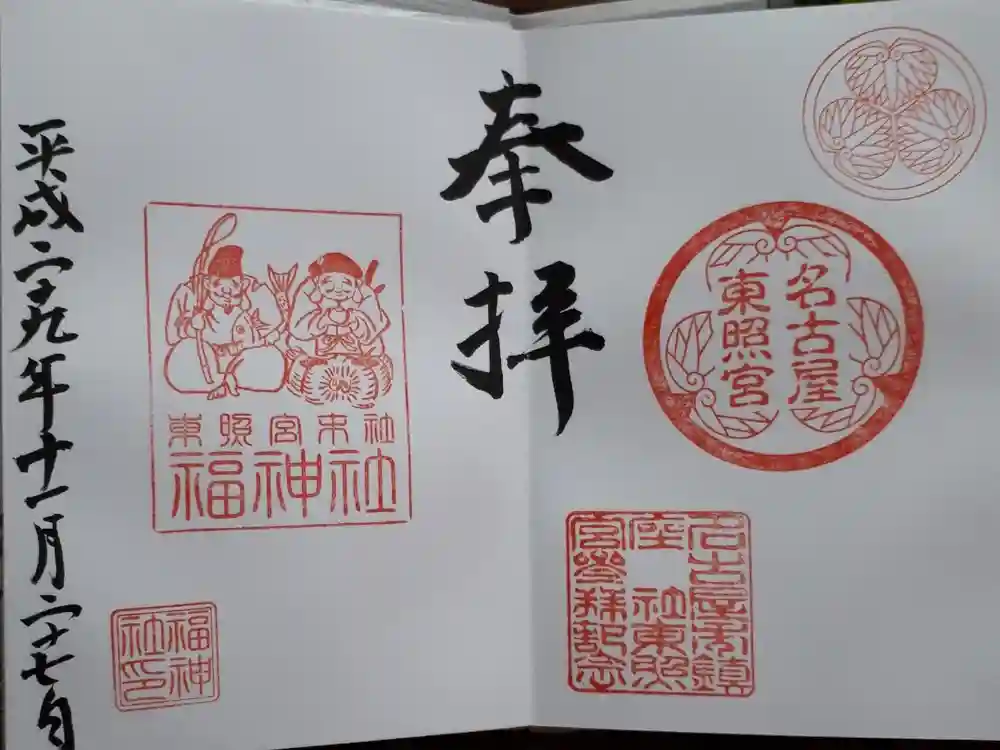 奉拝
名古屋
東照宮
名古屋市鎮
座 社東照
宮参拝記念
東照宮末社
福神社
福神
社印
平成二十九年十一月二十七日